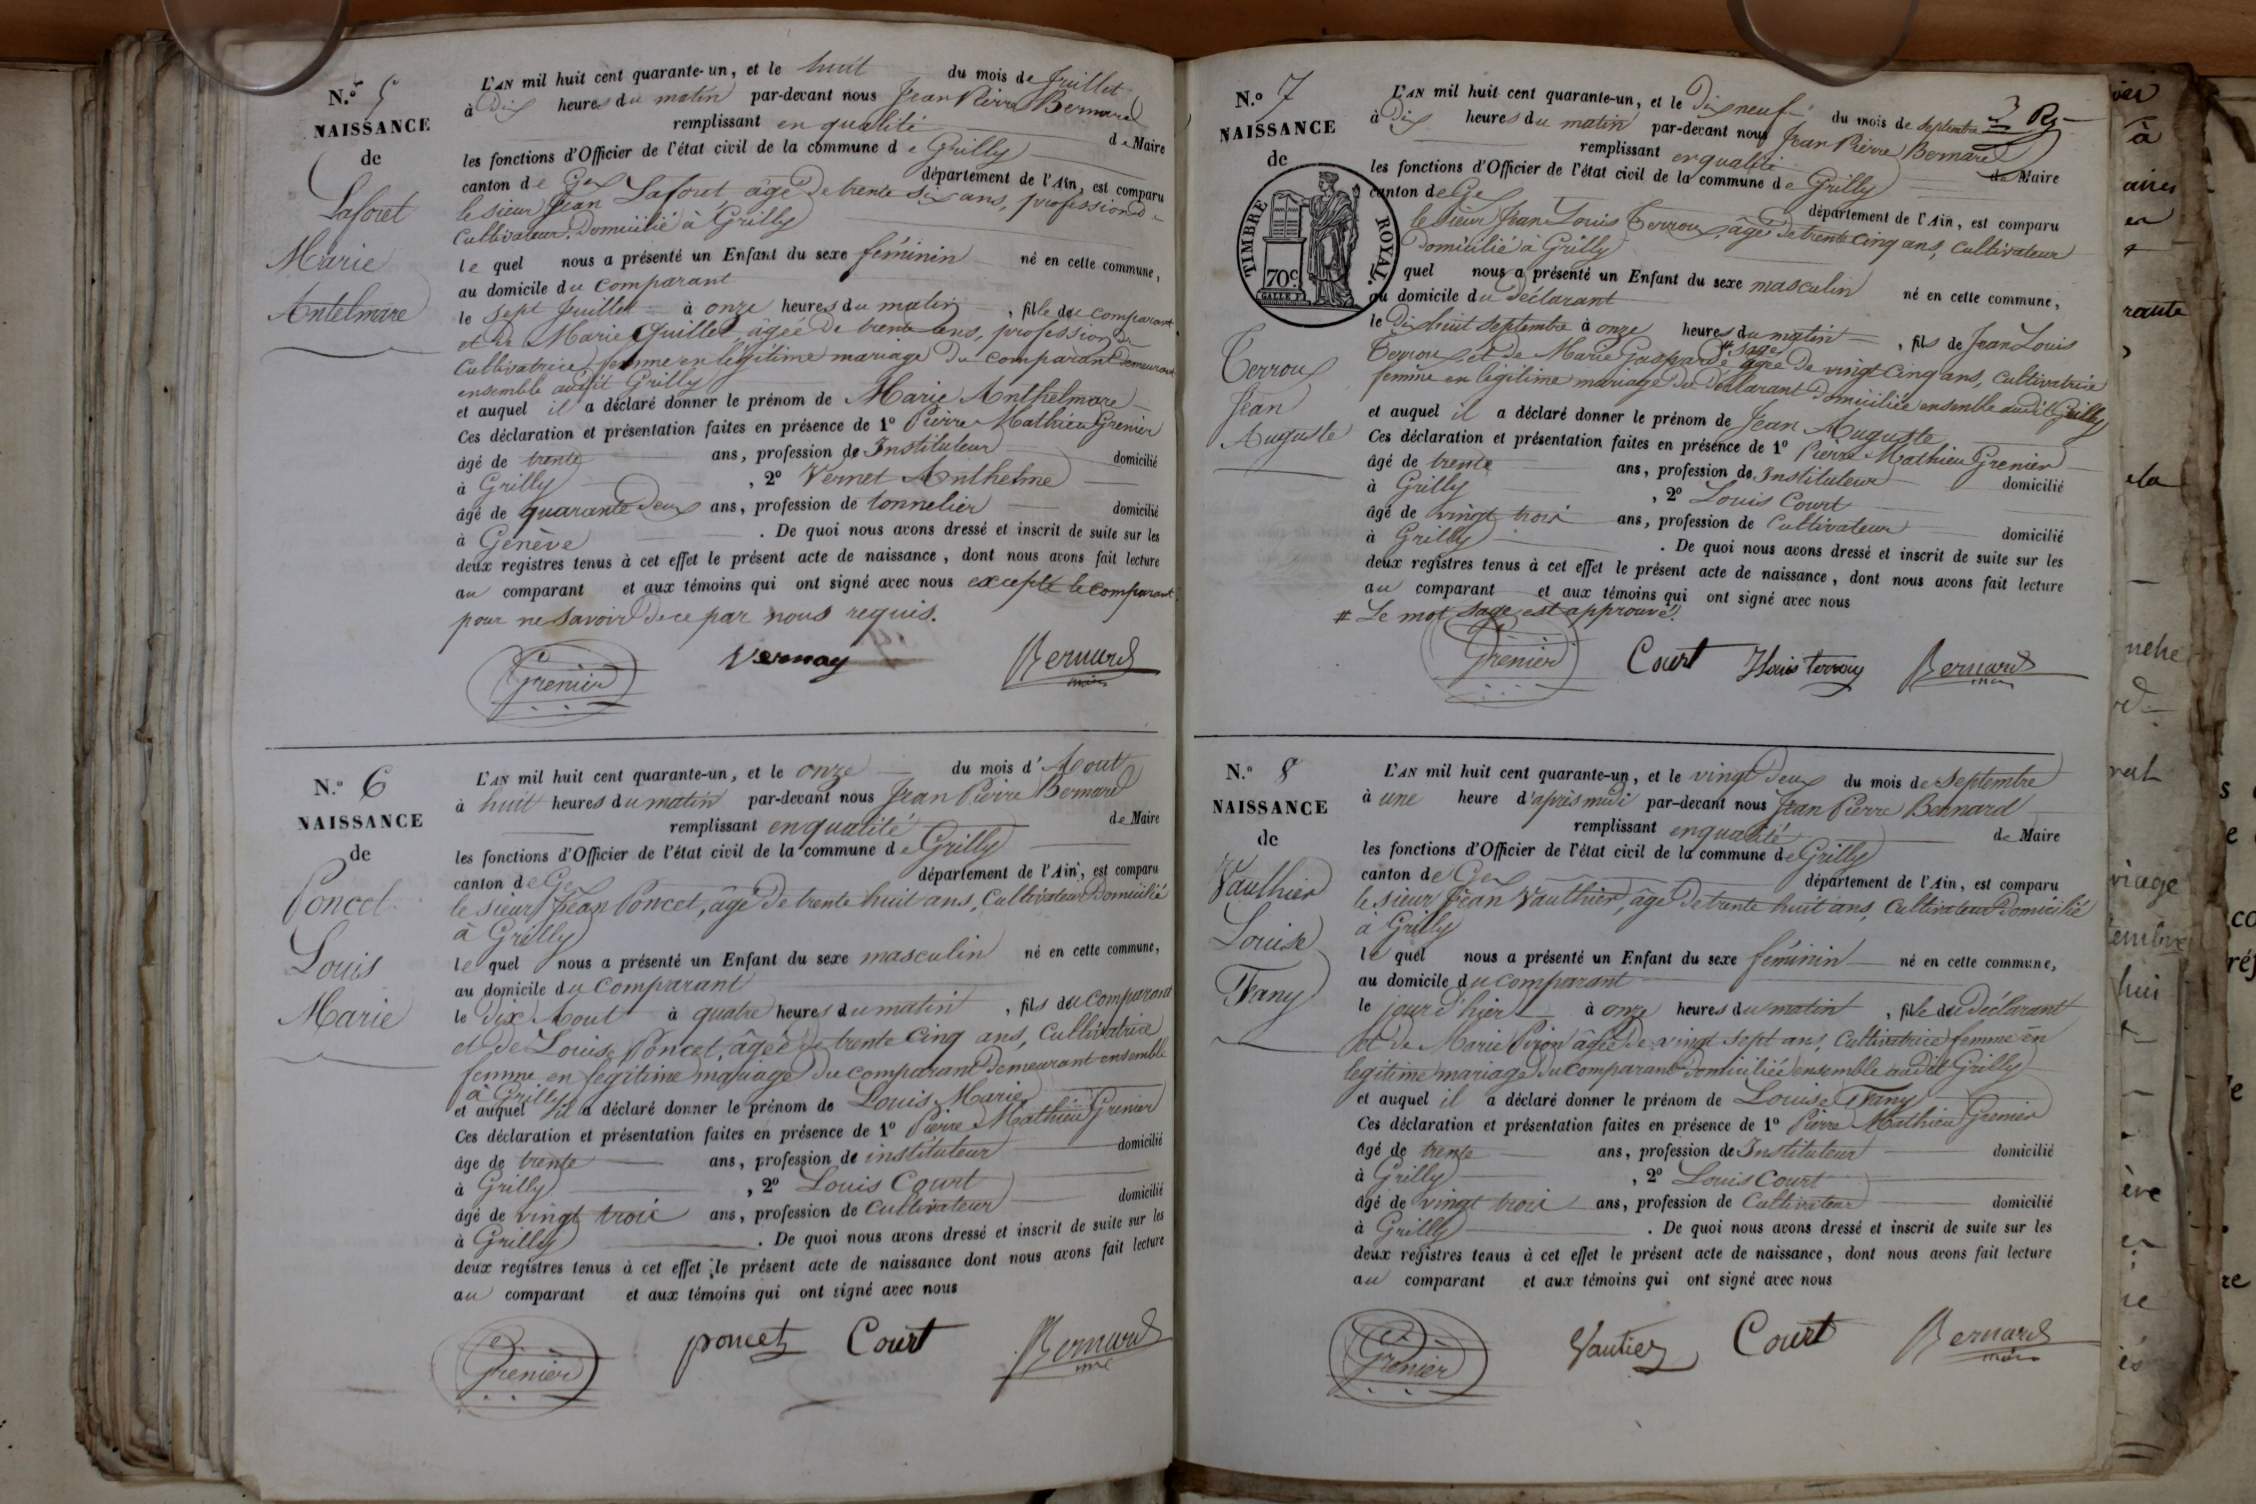 N.º 5
NAISSANCE
de
Laforet
Marie
Antelmare
L'AN mil huit cent quarante-un, et le huit du mois de Juillet
à Dix heures du matin par-devant nous Jean Pierre Bernard
remplissant en qualité de Maire
les fonctions d'Officier de l'état civil de la commune de Grilly
canton de Gex département de l'Ain, est comparu
le sieur Jean Laforet, âgé De trente six ans, profession de
Cultivateur. Domicilié à Grilly
le quel nous a présenté un Enfant du sexe féminin né en cette commune,
au domicile du comparant
le sept Juillet à onze heures du matin, fille du comparant
et de Marie Quillet, âgée De trente ans, profession de
Cultivatrice femme en légitime mariage Du comparant demeurant
ensemble audit Grilly
et auquel il a déclaré donner le prénom de Marie Anthelmare
Ces déclaration et présentation faites en présence de 1º Pierre Mathieu Grenier
âgé de trente ans, profession de Instituteur domicilié
à Grilly, 2º Vernet Anthelme
âgé de quarante Deux ans, profession de tonnelier domicilié
à Genève. De quoi nous avons dressé et inscrit de suite sur les
deux registres tenus à cet effet le présent acte de naissance, dont nous avons fait lecture
au comparant et aux témoins qui ont signé avec nous excepté le comparant
pour ne savoir De ce par nous requis.
Grenier Vernay Bernard
maire
N.º 6
NAISSANCE
de
Poncet
Louis
Marie
L'AN mil huit cent quarante-un, et le onze du mois d'Aout
à huit heures du matin par-devant nous Jean Pierre Bernard
remplissant en qualité de Maire
les fonctions d'Officier de l'état civil de la commune de Grilly
canton de Gex département de l'Ain, est comparu
le sieur Jean Poncet, âgé De trente huit ans, Cultivateur Domicilié
à Grilly
le quel nous a présenté un Enfant du sexe masculin né en cette commune,
au domicile du Comparant
le Dix Aout à quatre heures du matin, fils du comparant
et De Louise Poncet, âgée De trente cinq ans, Cultivatrice
femme en légitime mariage Du comparant Demeurant ensemble
à Grilly
et auquel il a déclaré donner le prénom de Louis Marie
Ces déclaration et présentation faites en présence de 1º Pierre Mathieu Grenier
âge de trente ans, profession de instituteur domicilié
à Grilly, 2º Louis Court
âgé de vingt trois ans, profession de Cultivateur domicilié
à Grilly. De quoi nous avons dressé et inscrit de suite sur les
deux registres tenus à cet effet le présent acte de naissance dont nous avons fait lecture
au comparant et aux témoins qui ont signé avec nous
Grenier poncet Court Bernard
N.º 7
NAISSANCE
de
TIMBRE ROYAL.
70 c.
Terroux
Jean
Auguste
L'AN mil huit cent quarante-un, et le Dix neuf du mois de septembre
à Dix heures du matin par-devant nous Jean Pierre Bernard
remplissant en qualité de Maire
les fonctions d'Officier de l'état civil de la commune de Grilly
canton de Gex département de l'Ain, est comparu
le Sieur Jean Louis Terroux, âgé De trente cinq ans, Cultivateur
Domicilié à Grilly
quel nous a présenté un Enfant du sexe masculin né en cette commune,
au domicile du Déclarant
le Dix huit septembre à onze heures du matin, fils de Jean Louis
Terroux et de Marie Gasparde # sage âgée De vingt Cinq ans, Cultivatrice
femme en légitime mariage Du Déclarant Domiciliée ensemble audit Grilly
et auquel il a déclaré donner le prénom de Jean Auguste
Ces déclaration et présentation faites en présence de 1º Pierre Mathieu Grenier
âgé de trente ans, profession de Instituteur domicilié
à Grilly, 2º Louis Court
âgé de vingt trois ans, profession de Cultivateur domicilié
à Grilly. De quoi nous avons dressé et inscrit de suite sur les
deux registres tenus à cet effet le présent acte de naissance, dont nous avons fait lecture
au comparant et aux témoins qui ont signé avec nous
# Le mot sage est approuvé.
Grenier Court J Louis terroux Bernard
N.º 8
NAISSANCE
de
Vaulhier
Louise
Fany
L'AN mil huit cent quarante-un, et le vingt Deux du mois de Septembre
à une heure d'après midi par-devant nous Jean Pierre Bernard
remplissant en qualité de Maire
les fonctions d'Officier de l'état civil de la commune de Grilly
canton de Gex département de l'Ain, est comparu
le sieur Jean Vaulhier, âgé De trente huit ans, Cultivateur Domicilié
à Grilly
le quel nous a présenté un Enfant du sexe féminin né en cette commune,
au domicile du Comparant
le jour d'hier à onze heures du matin, fille du déclarant
et De Marie Piron âgée De vingt sept ans, Cultivatrice femme en
légitime mariage Du Comparant Domiciliée ensemble audit Grilly
et auquel il a déclaré donner le prénom de Louise Fany
Ces déclaration et présentation faites en présence de 1º Pierre Mathieu Grenier
âgé de trente ans, profession de Instituteur domicilié
à Grilly, 2º Louis Court
âgé de vingt trois ans, profession de Cultivateur domicilié
à Grilly. De quoi nous avons dressé et inscrit de suite sur les
deux registres tenus à cet effet le présent acte de naissance, dont nous avons fait lecture
au comparant et aux témoins qui ont signé avec nous
Grenier Vautier Court Bernard
maire